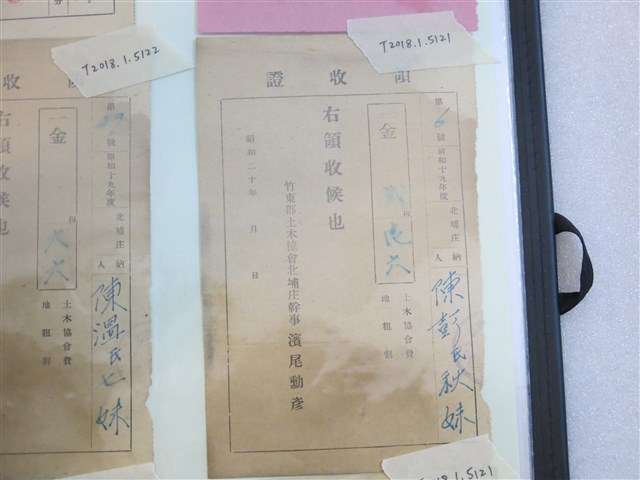 T2018.1.5122
T2018.1.5121
領收證
第6號 昭和十九年度 北埔庄納人 陳彭氏秋妹
一金
土木協會費
地租割
右領收候也
昭和二十年 月 日
竹東郡土木協會北埔庄幹事 濱尾勳彥
收證
第 號 昭和十九年度 北埔庄納人 陳溫氏七妹
一金
土木協會費
地租割
右領收候也
2018.1.5121